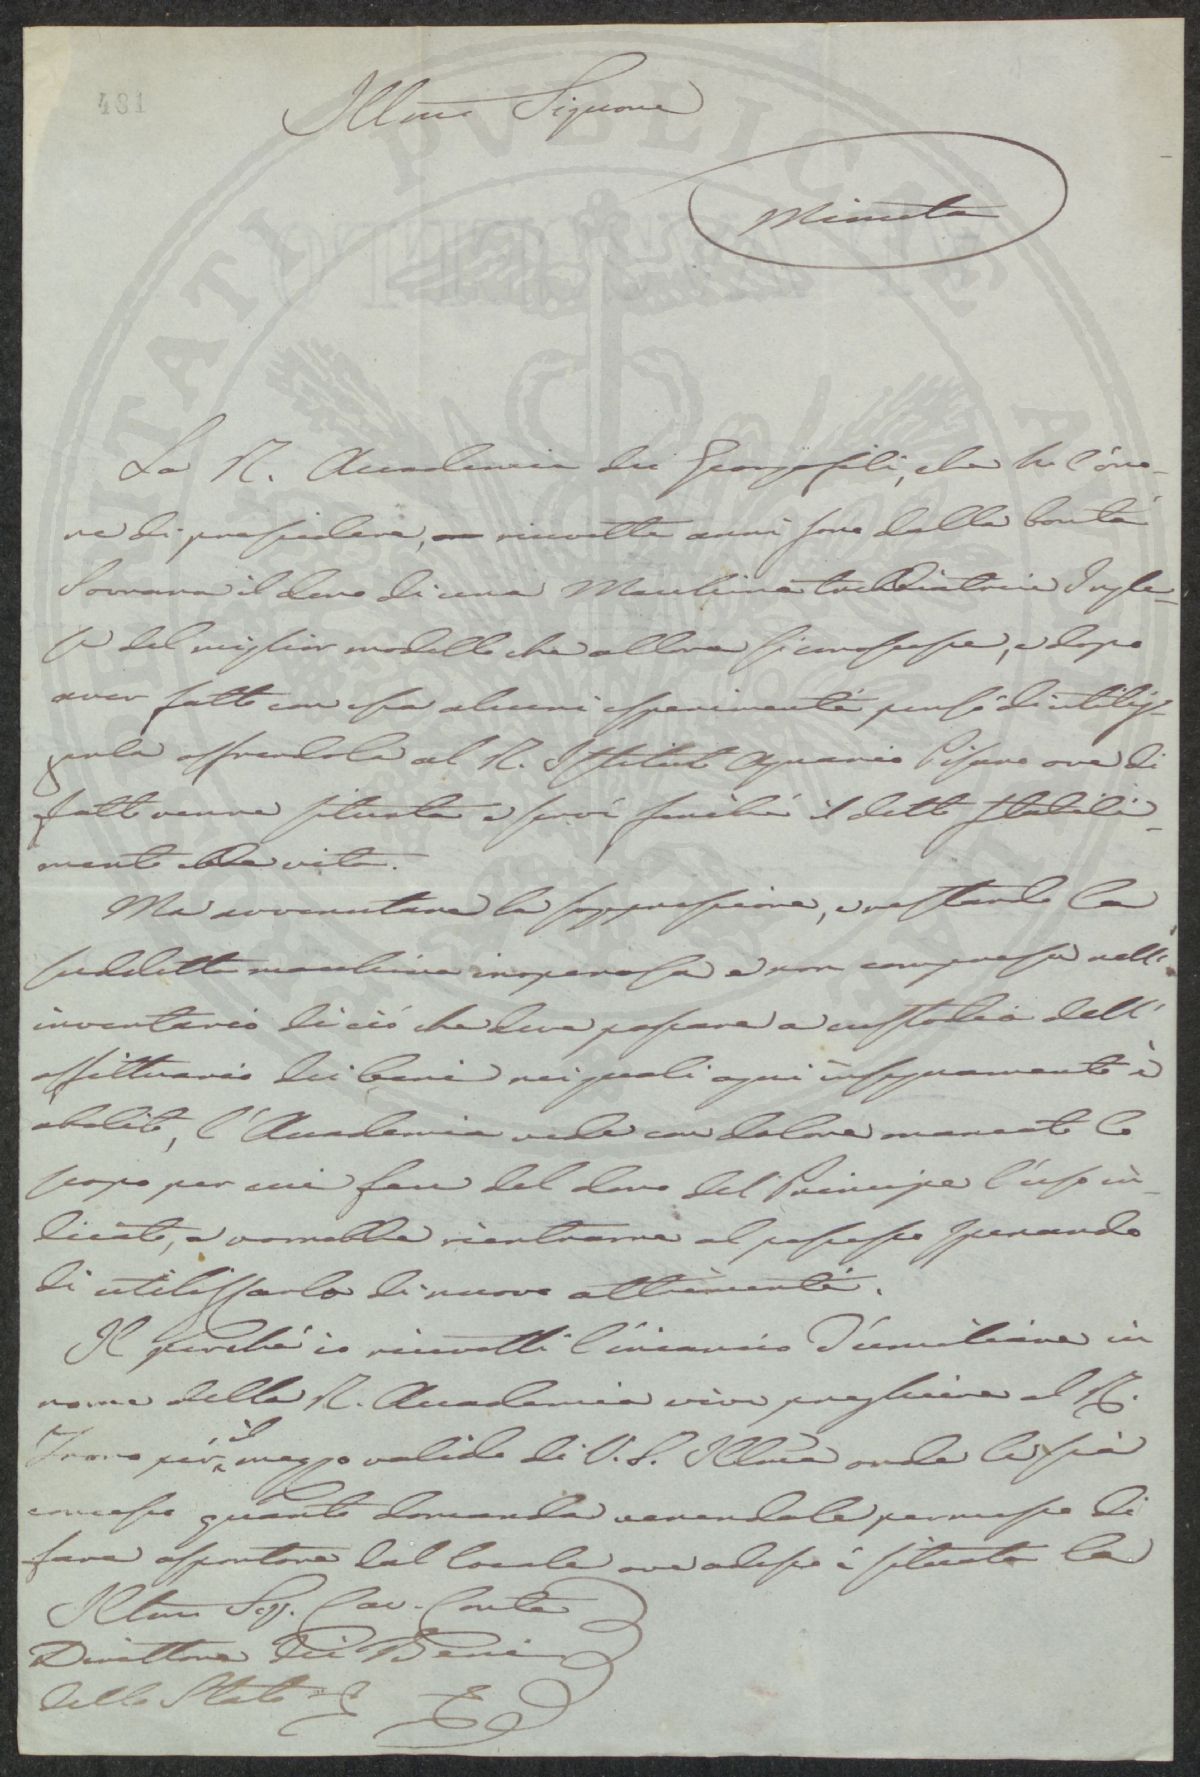 481
Illmo Signore
Minuta
La R. Accademia dei Georgofili, che ho l'ono-
re di presiedere, ricevette anni sono dalla bontà
Sovrana il dono di una Macchina trebbiatrice Ingle-
se del miglior modello che allora si conoscesse, e dopo
aver fatto con essa alcuni esperimenti pensò di utiliz-
zarla offrendola al R. Istituto Agrario Pisano ove di
fatto venne situata e servì finché il detto Stabili-
mento ebbe vita.
Ma avvenutane la soppressione, e restando la
suddetta macchina inoperosa e non compresa nell'
inventario di ciò che deve passare a custodia dell'
affittuario dei beni nei quali ogni insegnamento è
abolito, l'Accademia vede con dolore mancato lo
scopo per cui fece del dono del Principe l'uso in-
dicato, e vorrebbe rientrarne al possesso sperando
di utilizzarlo di nuovo altrimenti.
Il perché io ricevetti l'incarico d'umiliare in
nome della R. Accademia vive preghiere al R.
Trono per il mezzo valido di V. S. Illma onde le sia
concesso quanto domanda venendole permesso di
fare asportare dal locale ove adesso è situata la
Illmo Sig. Cav. Conte
Direttore dei Beni
dello Stato
PUBLICAE